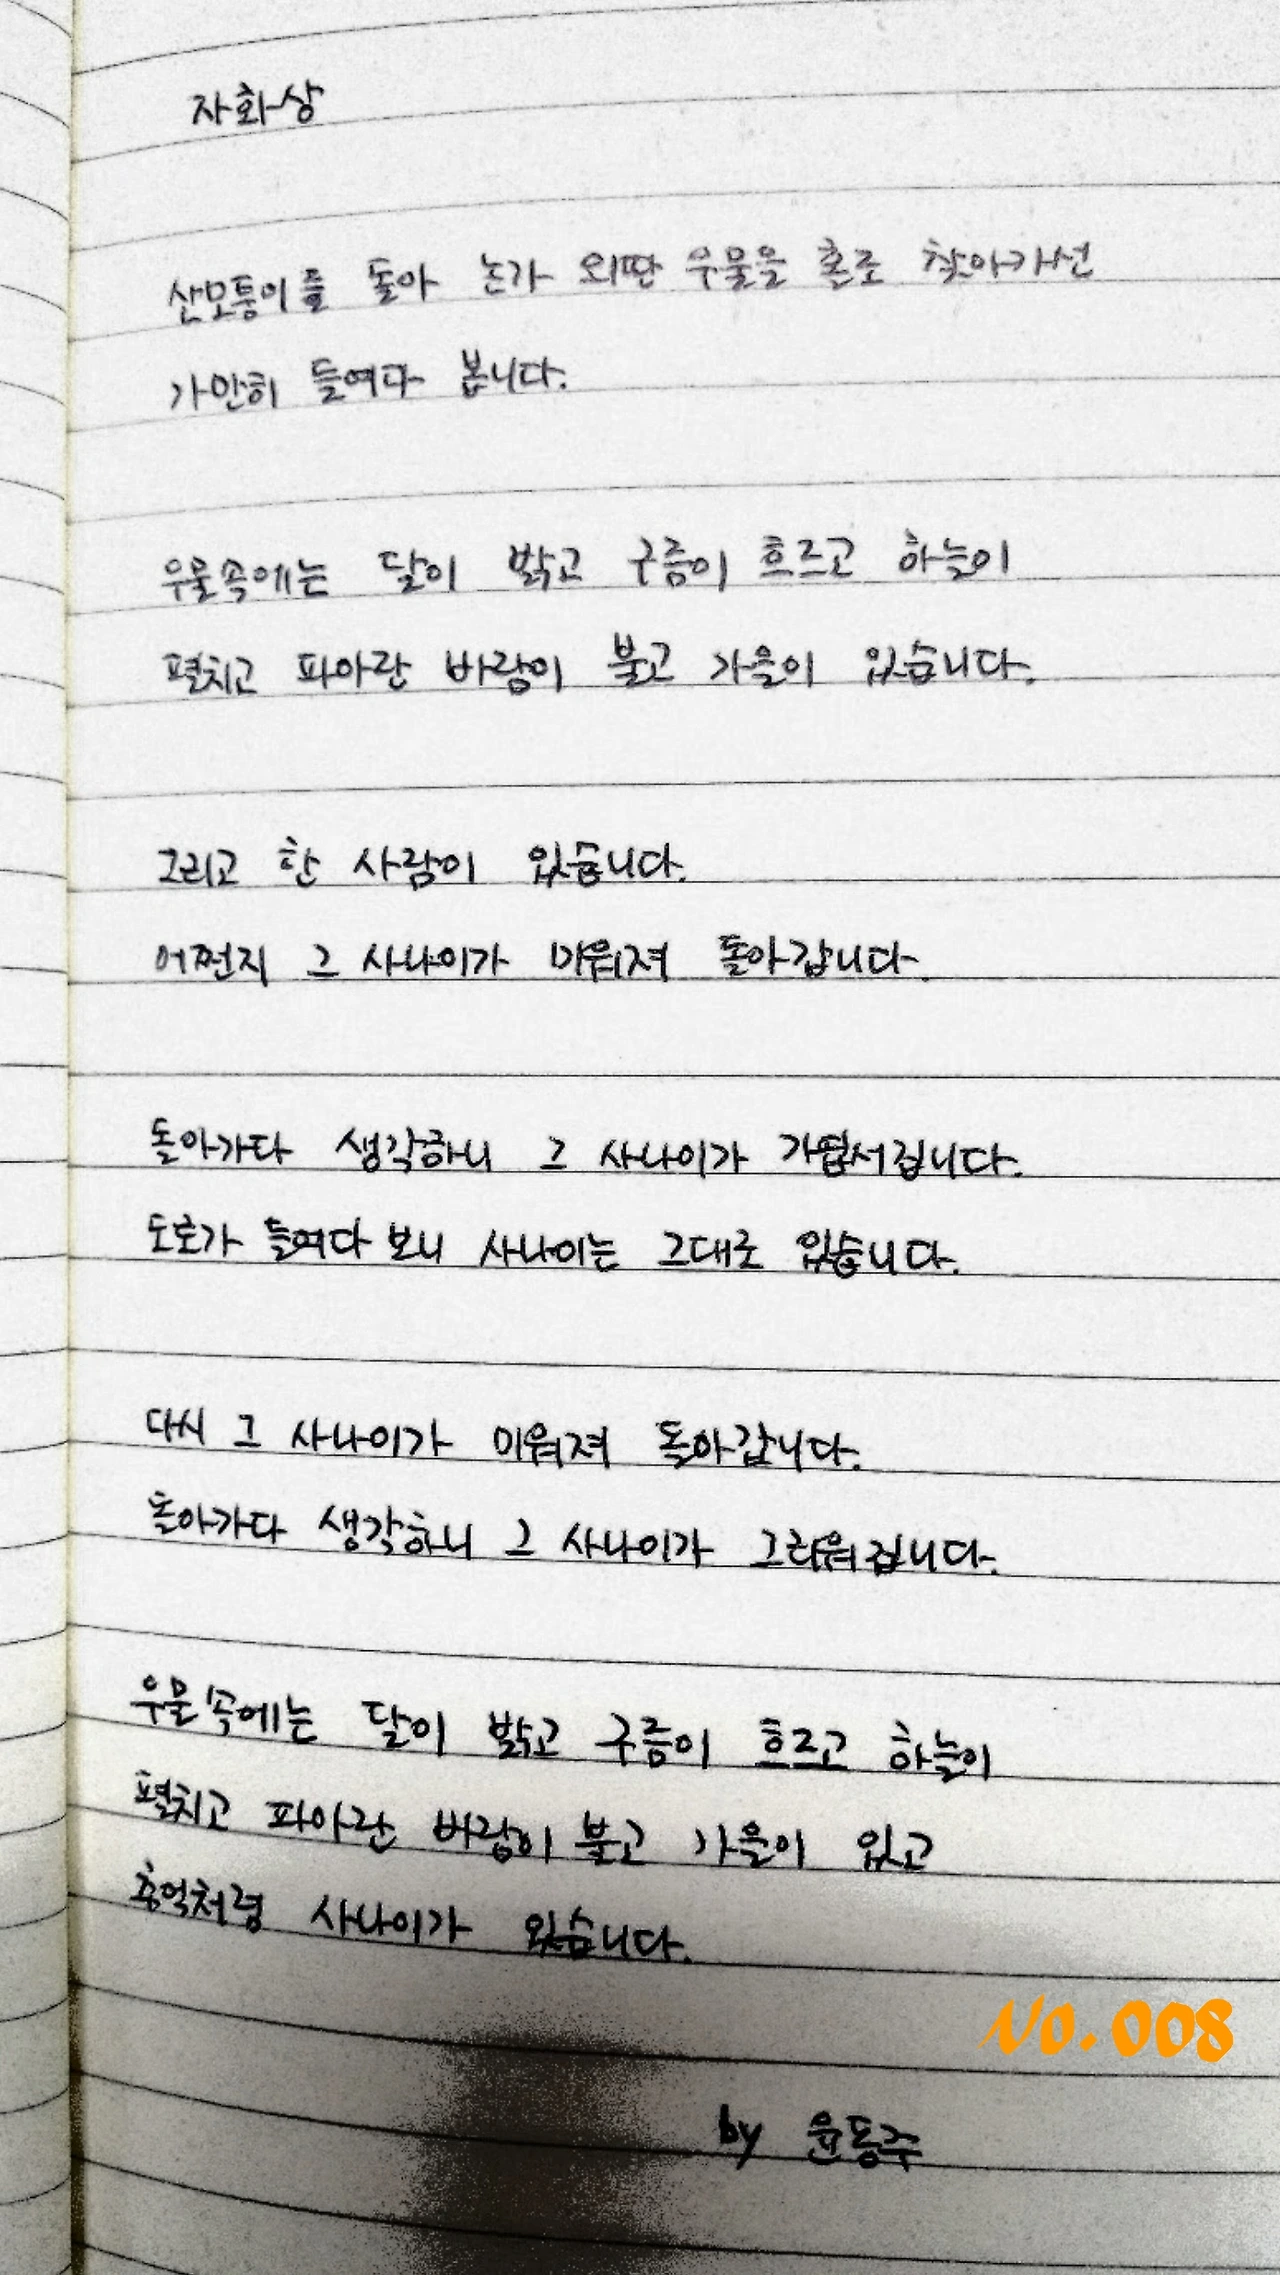 자화상
산모퉁이를 돌아 논가 외딴 우물을 혼로 찾아가선
가만히 들여다 봅니다.
우물속에는 달이 밝고 구름이 흐르고 하늘이
펼치고 파아란 바람이 불고 가을이 있습니다.
그리고 한 사람이 있습니다.
어쩐지 그 사나이가 미워져 돌아갑니다.
돌아가다 생각하니 그 사나이가 가엽서집니다.
도로가 들여다 보니 사나이는 그대로 있습니다.
다시 그 사나이가 미워져 돌아갑니다.
돌아가다 생각하니 그 사나이가 그리워집니다.
우물속에는 달이 밝고 구름이 흐르고 하늘이
펼치고 파아란 바람이 불고 가을이 있고
추억처럼 사나이가 있습니다.
No. 008
by 윤동주